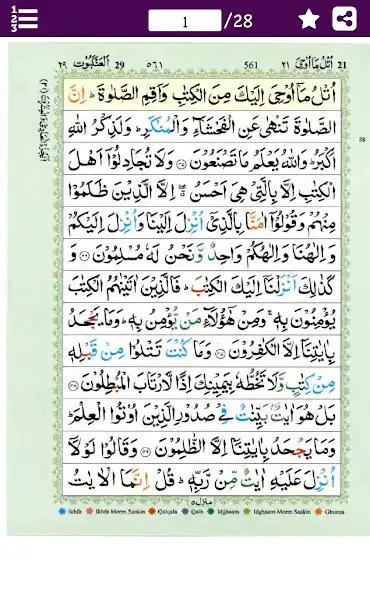 1 /28
123
٢٩ اَلْعَنْكَبُوْت 29 ٥٦١ 561 اُتْلُ مَاۤ اُوْحِیَ ٢١ 21
اُتْلُ مَاۤ اُوْحِیَ اِلَیْكَ مِنَ الْكِتٰبِ وَاَقِمِ الصَّلٰوةَ ؕ اِنَّ
الصَّلٰوةَ تَنْهٰی عَنِ الْفَحْشَآءِ وَالْمُنْكَرِ ؕ وَلَذِكْرُ اللّٰهِ
اَكْبَرُ ؕ وَاللّٰهُ یَعْلَمُ مَا تَصْنَعُوْنَ ﴿۴۵﴾ وَلَا تُجَادِلُوْۤا اَهْلَ
الْكِتٰبِ اِلَّا بِالَّتِیْ هِیَ اَحْسَنُ ۖ اِلَّا الَّذِیْنَ ظَلَمُوْا
مِنْهُمْ وَقُوْلُوْۤا اٰمَنَّا بِالَّذِیْۤ اُنْزِلَ اِلَیْنَا وَاُنْزِلَ اِلَیْكُمْ
وَ اِلٰهُنَا وَاِلٰهُكُمْ وَاحِدٌ وَّنَحْنُ لَهٗ مُسْلِمُوْنَ ﴿۴۶﴾ وَ
كَذٰلِكَ اَنْزَلْنَاۤ اِلَیْكَ الْكِتٰبَ ؕ فَالَّذِیْنَ اٰتَیْنٰهُمُ الْكِتٰبَ
یُؤْمِنُوْنَ بِهٖ ۚ وَمِنْ هٰۤؤُلَآءِ مَنْ یُّؤْمِنُ بِهٖ ؕ وَمَا یَجْحَدُ
بِاٰیٰتِنَاۤ اِلَّا الْكٰفِرُوْنَ ﴿۴۷﴾ وَمَا كُنْتَ تَتْلُوْا مِنْ قَبْلِهٖ
مِنْ كِتٰبٍ وَّلَا تَخُطُّهٗ بِیَمِیْنِكَ اِذًا لَّارْتَابَ الْمُبْطِلُوْنَ ﴿۴۸﴾
بَلْ هُوَ اٰیٰتٌۢ بَیِّنٰتٌ فِیْ صُدُوْرِ الَّذِیْنَ اُوْتُوا الْعِلْمَ ؕ
وَمَا یَجْحَدُ بِاٰیٰتِنَاۤ اِلَّا الظّٰلِمُوْنَ ﴿۴۹﴾ وَقَالُوْا لَوْلَاۤ
اُنْزِلَ عَلَیْهِ اٰیٰتٌ مِّنْ رَّبِّهٖ ؕ قُلْ اِنَّمَا الْاٰیٰتُ
منزل ٥
Ikhfa Ikhfa Meem Saakin Qalqala Qalb Idghaam Idghaam Meem Saakin Ghunna